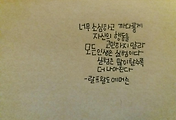 너무 소심하고 까다롭게
자신의 행동을
고민하지 말라
모든 인생은 실험이다
실험은 많이 할수록
더 나아진다
-랄프 왈도 에머슨